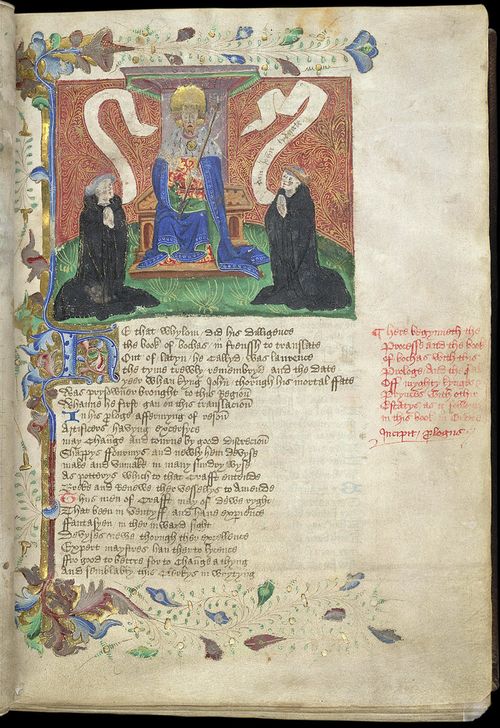 He that whylom did his dilligence
the book of bochas in frensh to translate
Out of latyn he callyd was laurence
the tyme trewly remembryd and the date
yeer whan kyng John thorugh his mortal ffate
Was prysowner brought to this Region
Whanne he first gan on this translacion
In his prologe affermyng of reson
Artificers havyng exercyse
may change and tourne by good discrecion
Shappys fourmys and newly hem devyse
make and unmake in many sundry wyse
As potterys which to that Crafft entende
Breke and Renewe ther vessellys to Amende
Thus men of Crafft may of dewe ryght
That been inventyff and have experience
ffantasyen in ther inward sight
Devyses newe thorugh ther excellence
Expert maystres han therto lycence
ffro good to bettre for to Change a thyng
And semblably thes Clerkys in Wrytyng
There begynneth the
Processe and the book
of bochas with the
Prologe And the fal
Off myghty
Prynces With othir
Estatys as it folow
in this book
Incipit prologus